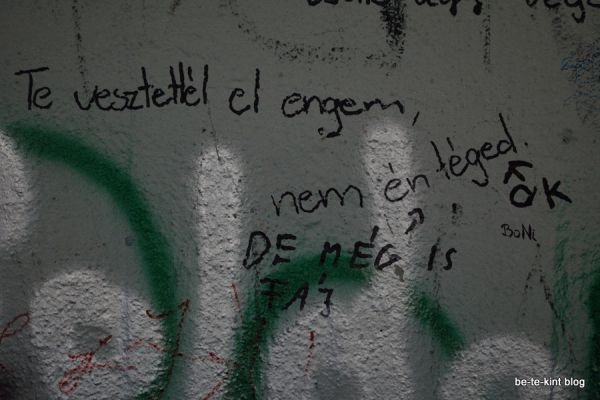 Te vesztettél el engem,
nem én téged.
OK
BoNi
DE MÉG IS
FÁJ
be-te-kint blog